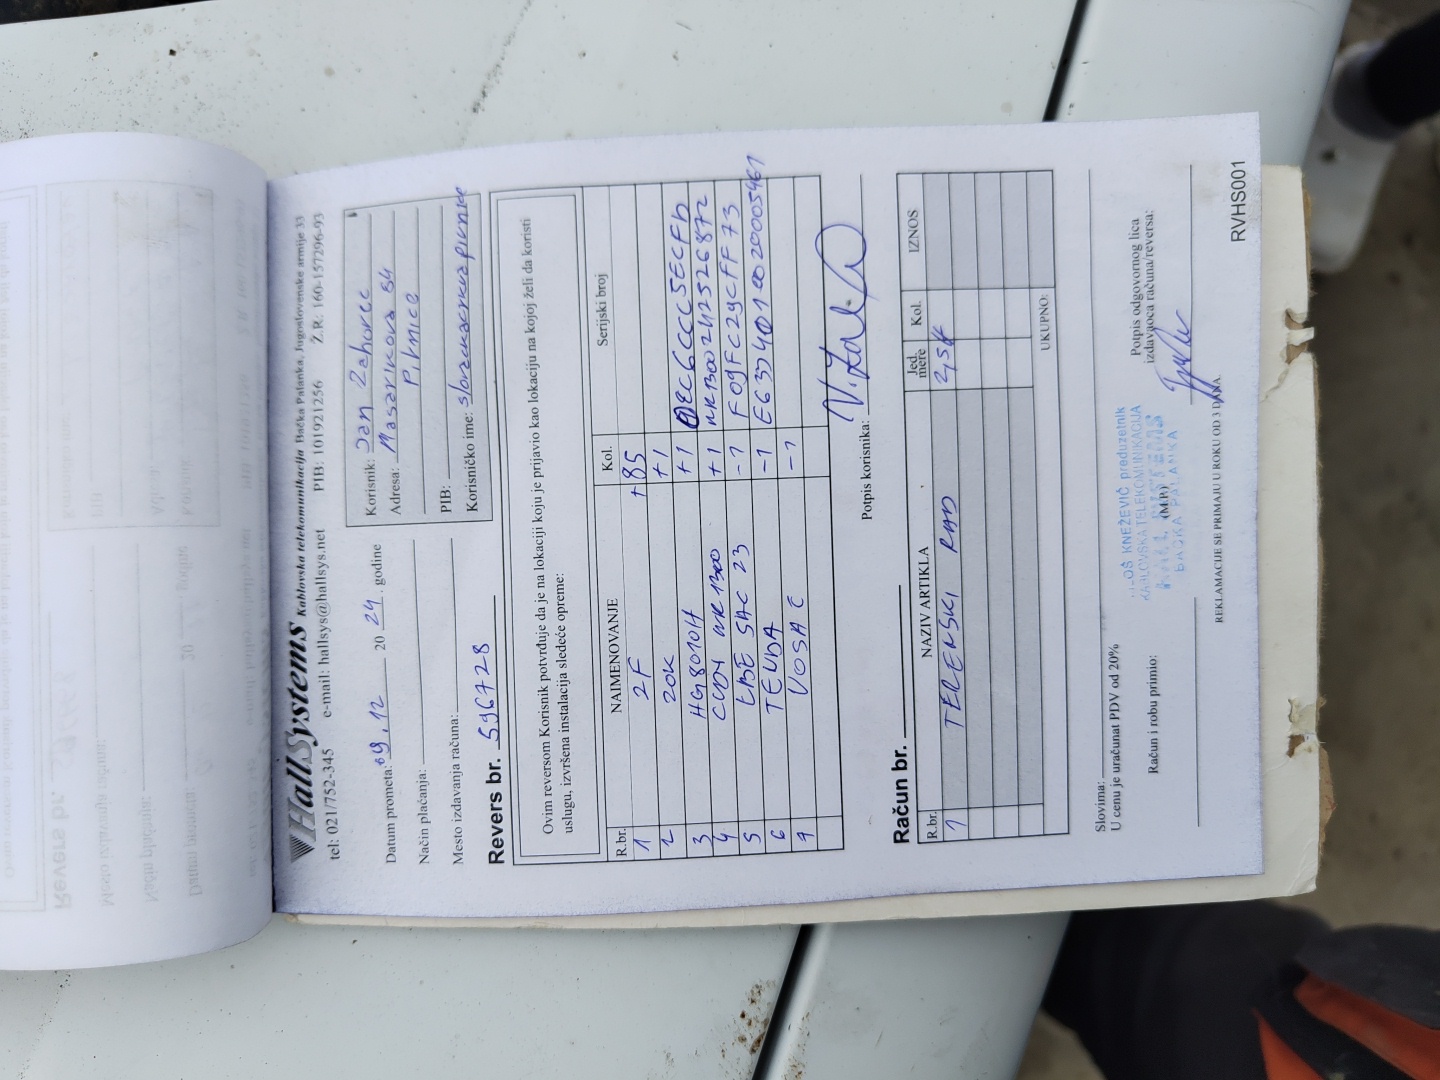 HallSystems Kablovska telekomunikacija Bačka Palanka, Jugoslovenske armije 33
tel: 021/752-345 e-mail: hallsys@hallsys.net PIB: 101921256 Ž.R: 160-157296-93
Datum prometa: 09.12 2024. godine
Način plaćanja:
Mesto izdavanja računa:
Korisnik: Jan Zahorec
Adresa: Masarikova 64
Pivnice
PIB:
Korisničko ime: slovackacrkvapivnice
Revers br. 596728
Ovim reversom Korisnik potvrđuje da je na lokaciji koju je prijavio kao lokaciju na kojoj želi da koristi
uslugu, izvršena instalacija sledeće opreme:
R.br. NAIMENOVANJE Kol. Serijski broj
1 2F +85
2 ZOK +1
3 HG8010H +1
4 CUDY WR1300 +1 WR1300242526872
5 LBE 5AC 23 -1 F09FC29CFF73
6 TENDA -1
7 NOSAČ -1
Potpis korisnika:
Račun br.
R.br. NAZIV ARTIKLA Jed. mere Kol. IZNOS
1 TERENSKI RAD 2,5H
UKUPNO:
Slovima:
U cenu je uračunat PDV od 20%
Račun i robu primio:
MILOŠ KNEŽEVIĆ preduzetnik
KABLOVSKA TELEKOMUNIKACIJA
HALL SYSTEMS
(M.P.)
BAČKA PALANKA
Potpis odgovornog lica
izdavaoca računa/reversa:
REKLAMACIJE SE PRIMAJU U ROKU OD 3 DANA.
RVHS001